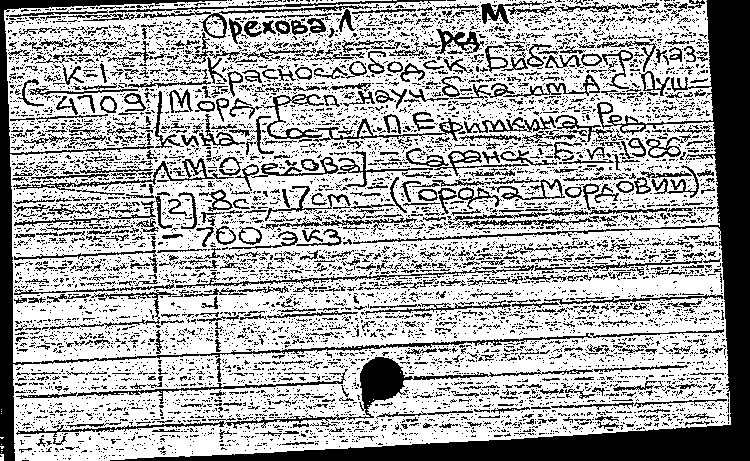 Орехова, Л М
ред.
К-1 Краснослободск. Библиогр. указ.
С 4709 /Морд. респ. науч. б-ка им. А.С.Пуш-
кина; [Сост. Л.П.Ефимкина; Ред.
Л.М.Орехова] – Саранск: Б.и., 1986.
[2], 8с.; 17см. – (Города Мордовии).
– 700 экз.